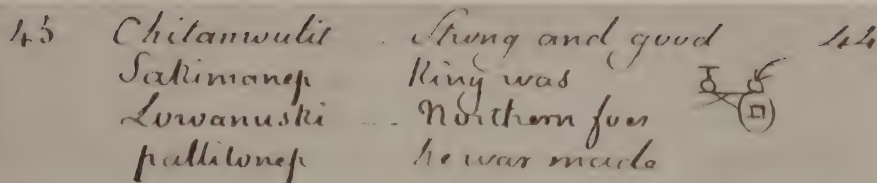 45 Chitanwulit .. Strong and good 44
Sakimanep King was
Lowanuski ... Northern foes
pallitonep he war made